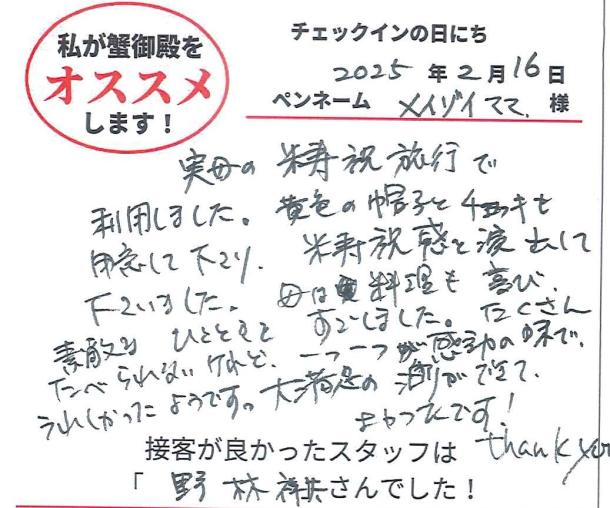 私が蟹御殿を
オススメ
します！
チェックインの日にち
2025年2月16日
ペンネーム メイゾイママ. 様
実母の 米寿祝旅行で
利用しました。黄色の帽子とチョッキも
用意して下さり、米寿祝感を演出して
下さいました。母は料理も喜び、
素敵な ひとときを すごしました。たくさん
たべられないけれど、一つ一つが感動の味で、
うれしかったようです。大満足の 旅ができて、
よかったです！
接客が良かったスタッフは thank you
「野林 さんでした！